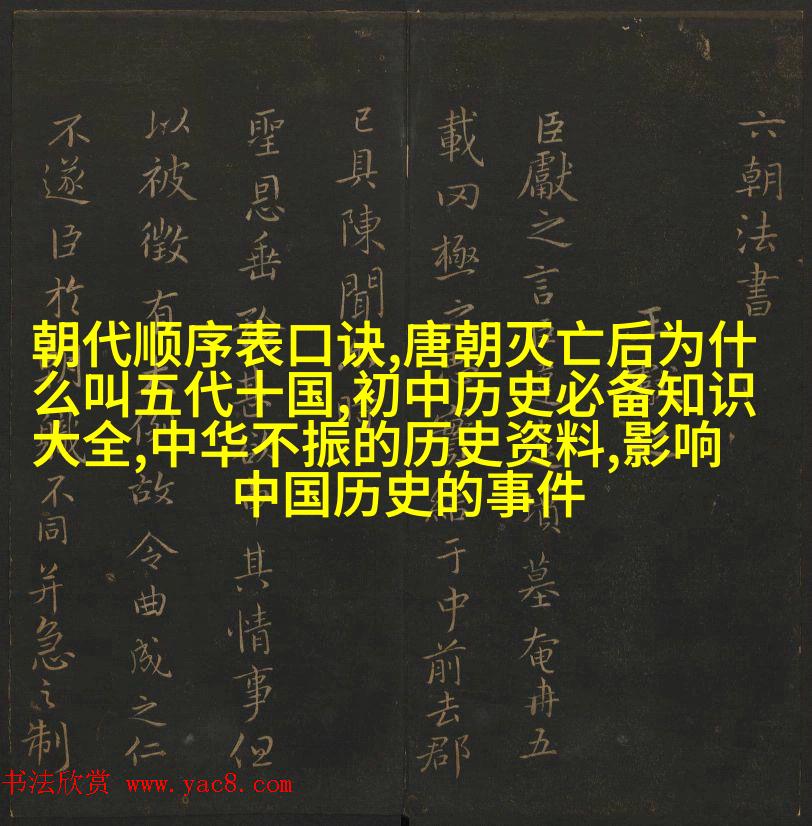 六朝法書
臣獻之言
載罔極之
已具陳聞
聖恩垂
以被徵有
不遂臣於
朝代顺序表口诀,唐朝灭亡后为什
么叫五代十国,初中历史必备知识
大全,中华不振的历史资料,影响
中国历史的事件
墓奄冉五
于中前去郡
其情事但
故令曲成之仁
不同并急之制
书法欣赏 www.yac8.com